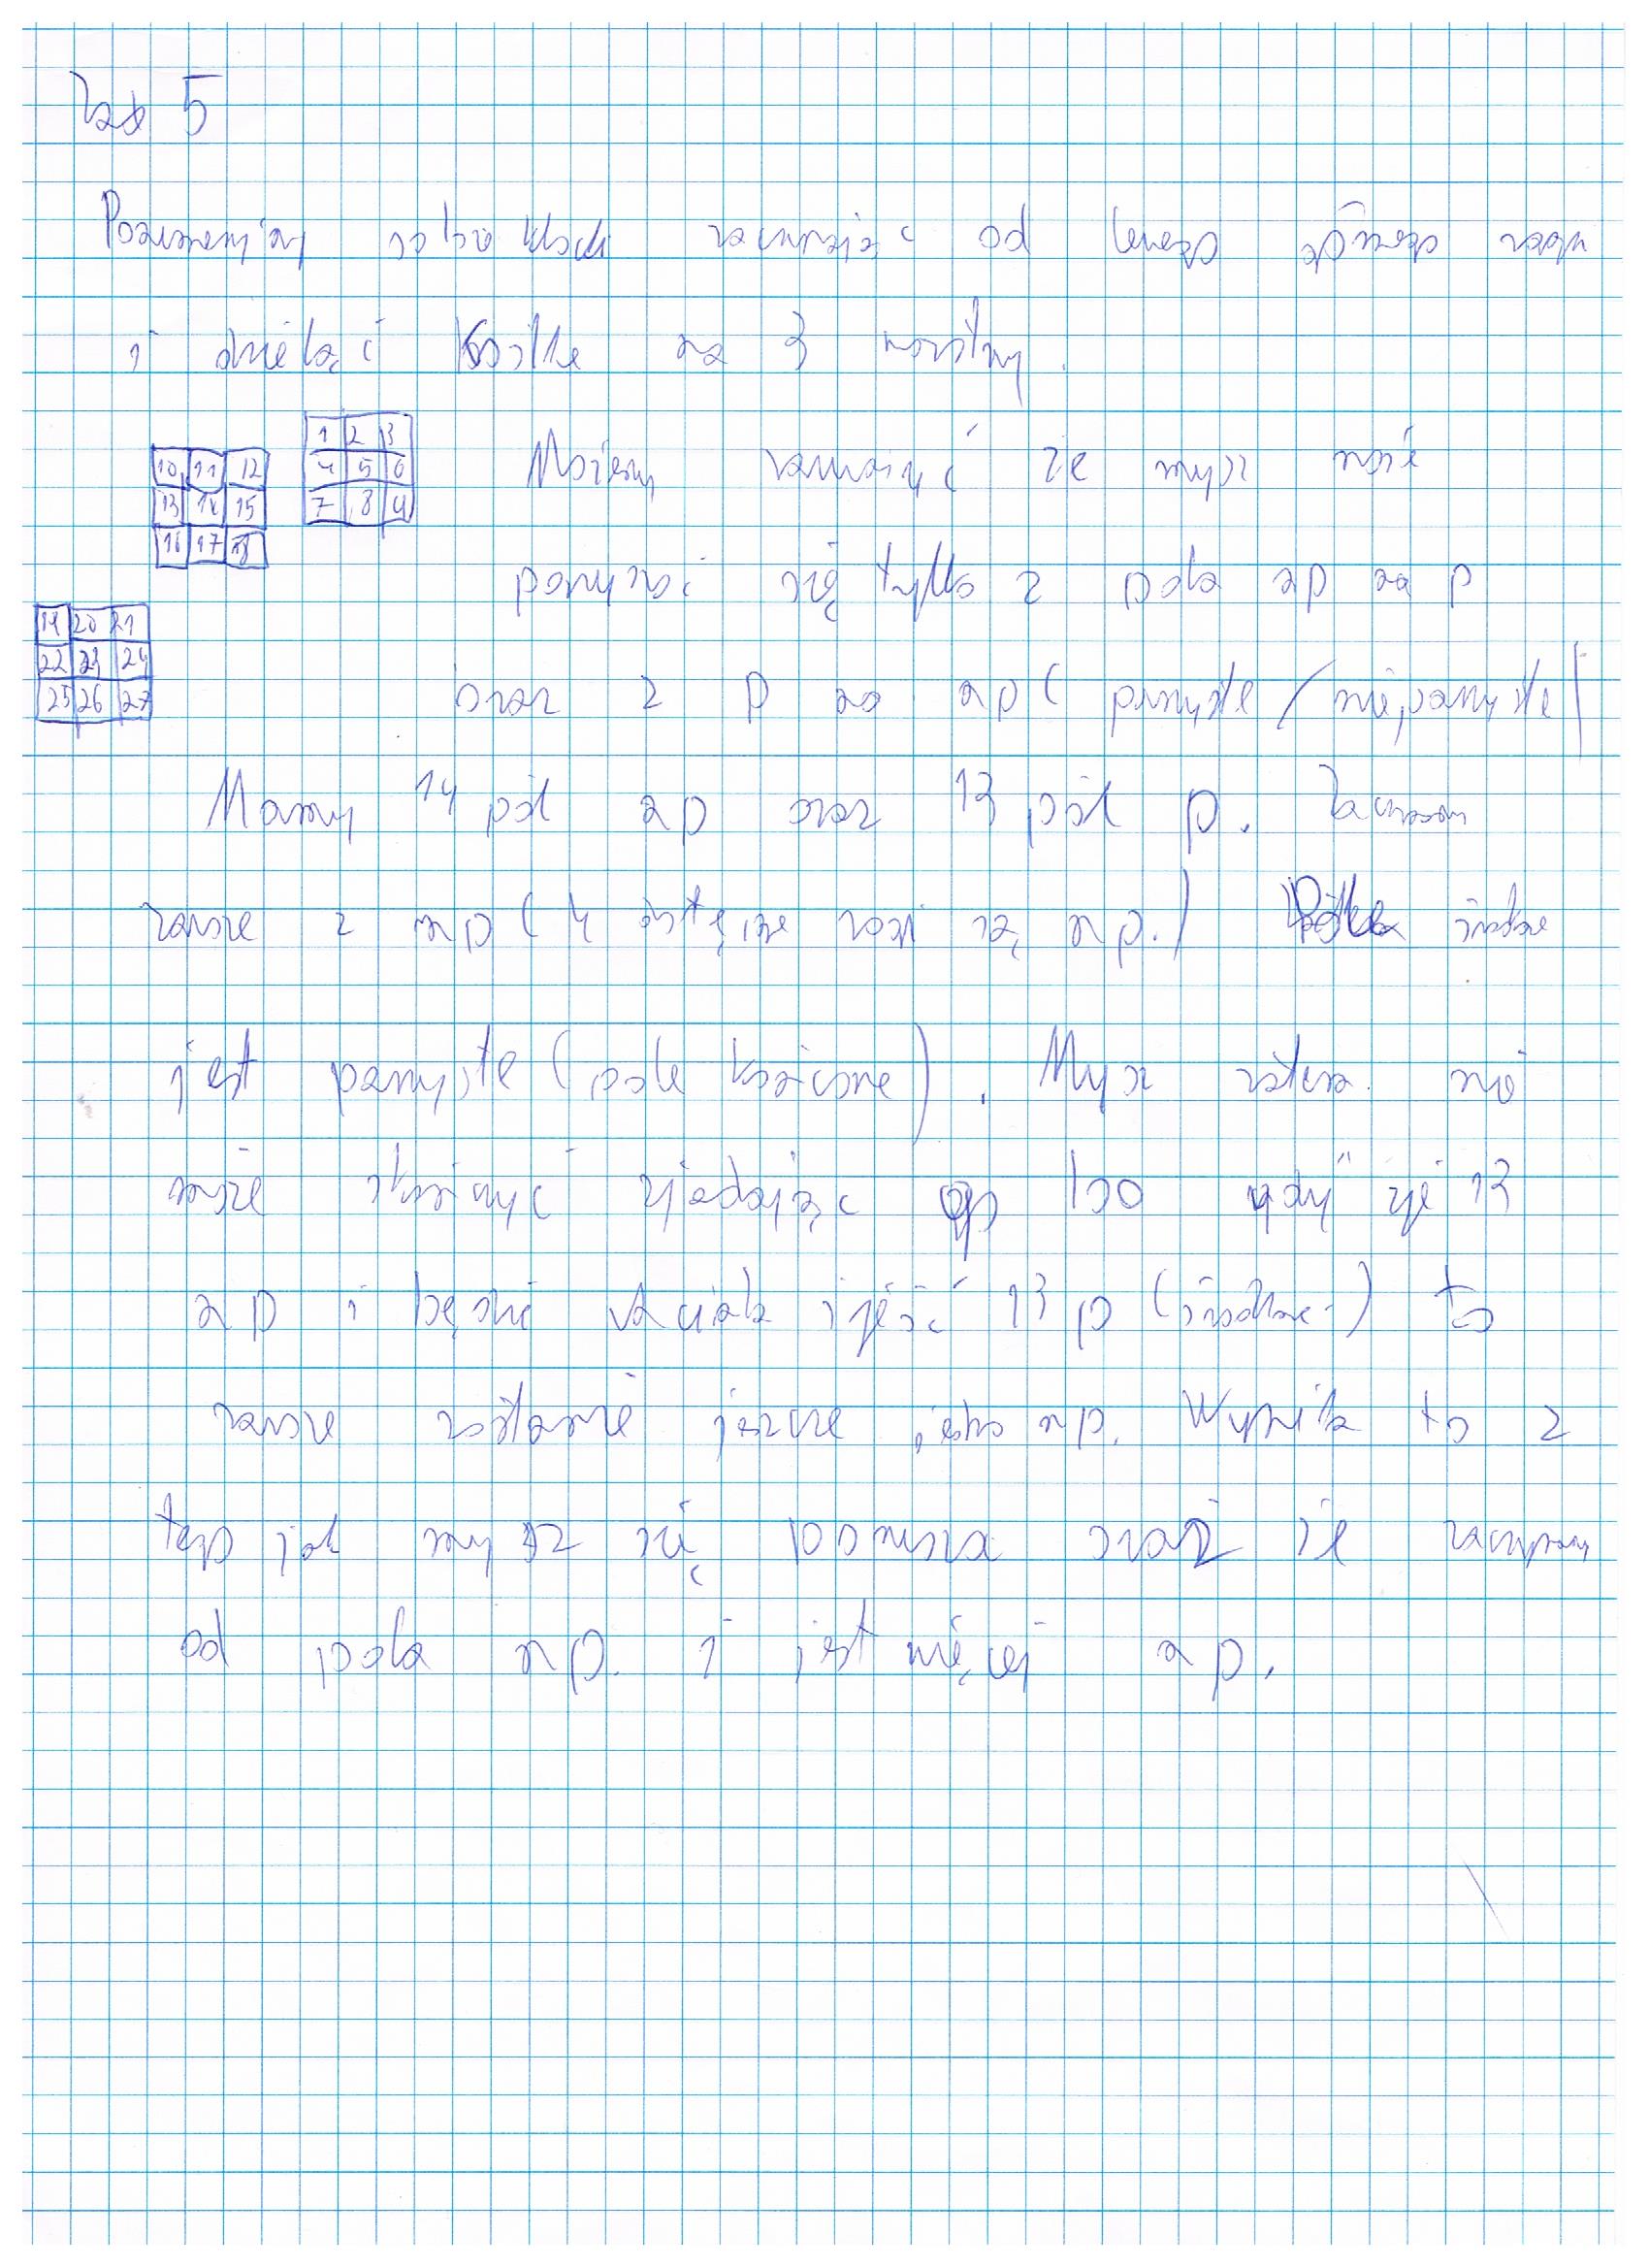 Zad 5
Ponumerujmy sobie klocki zaczynając od lewego górnego rogu
i dzieląc kostkę na 3 warstwy.
1 2 3
4 5 6
7 8 9
10 11 12
13 14 15
16 17 18
19 20 21
22 23 24
25 26 27
Możemy zauważyć że mysz może
poruszać się tylko z pola np na p
oraz z p na np (parzyste/nieparzyste)
Mamy 14 pól np oraz 13 pól p. Zaczynamy
zawsze z np (4 rogi są np.) środkowe
jest parzyste (pole końcowe). Mysz zatem nie
może skończyć zjadając go bo gdy zje 13
np i będzie chciała zjeść 13 p (środkowe) to
zawsze zostanie jeszcze jedno np. Wynika to z
tego jak mysz się porusza oraz że zaczynamy
od pola np. i jest więcej np.